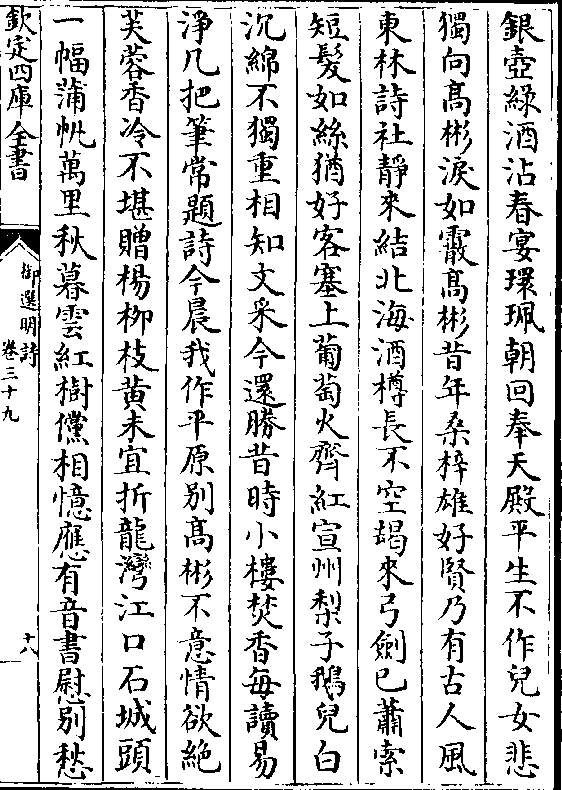 銀壺綠酒沾春宴環珮朝回奉天殿平生不作兒女悲
獨向髙彬淚如霰髙彬昔年桑梓雄好賢乃有古人風
東林詩社靜來結北海酒樽長不空朅來弓劍已蕭索
短髪如絲猶好客塞上葡萄火齊紅宣州梨子鵝兒白
沉綿不獨重相知文采今還勝昔時小樓焚香每讀易
淨几把筆常題詩今晨我作平原别髙彬不意情欲絶
芙蓉香冷不堪贈楊柳枝黄未宜折龍灣江口石城頭
一幅蒲帆萬里秋暮雲紅樹儻相憶應有音書慰别愁
欽定四庫全書
御選明詩
卷三十九
十八